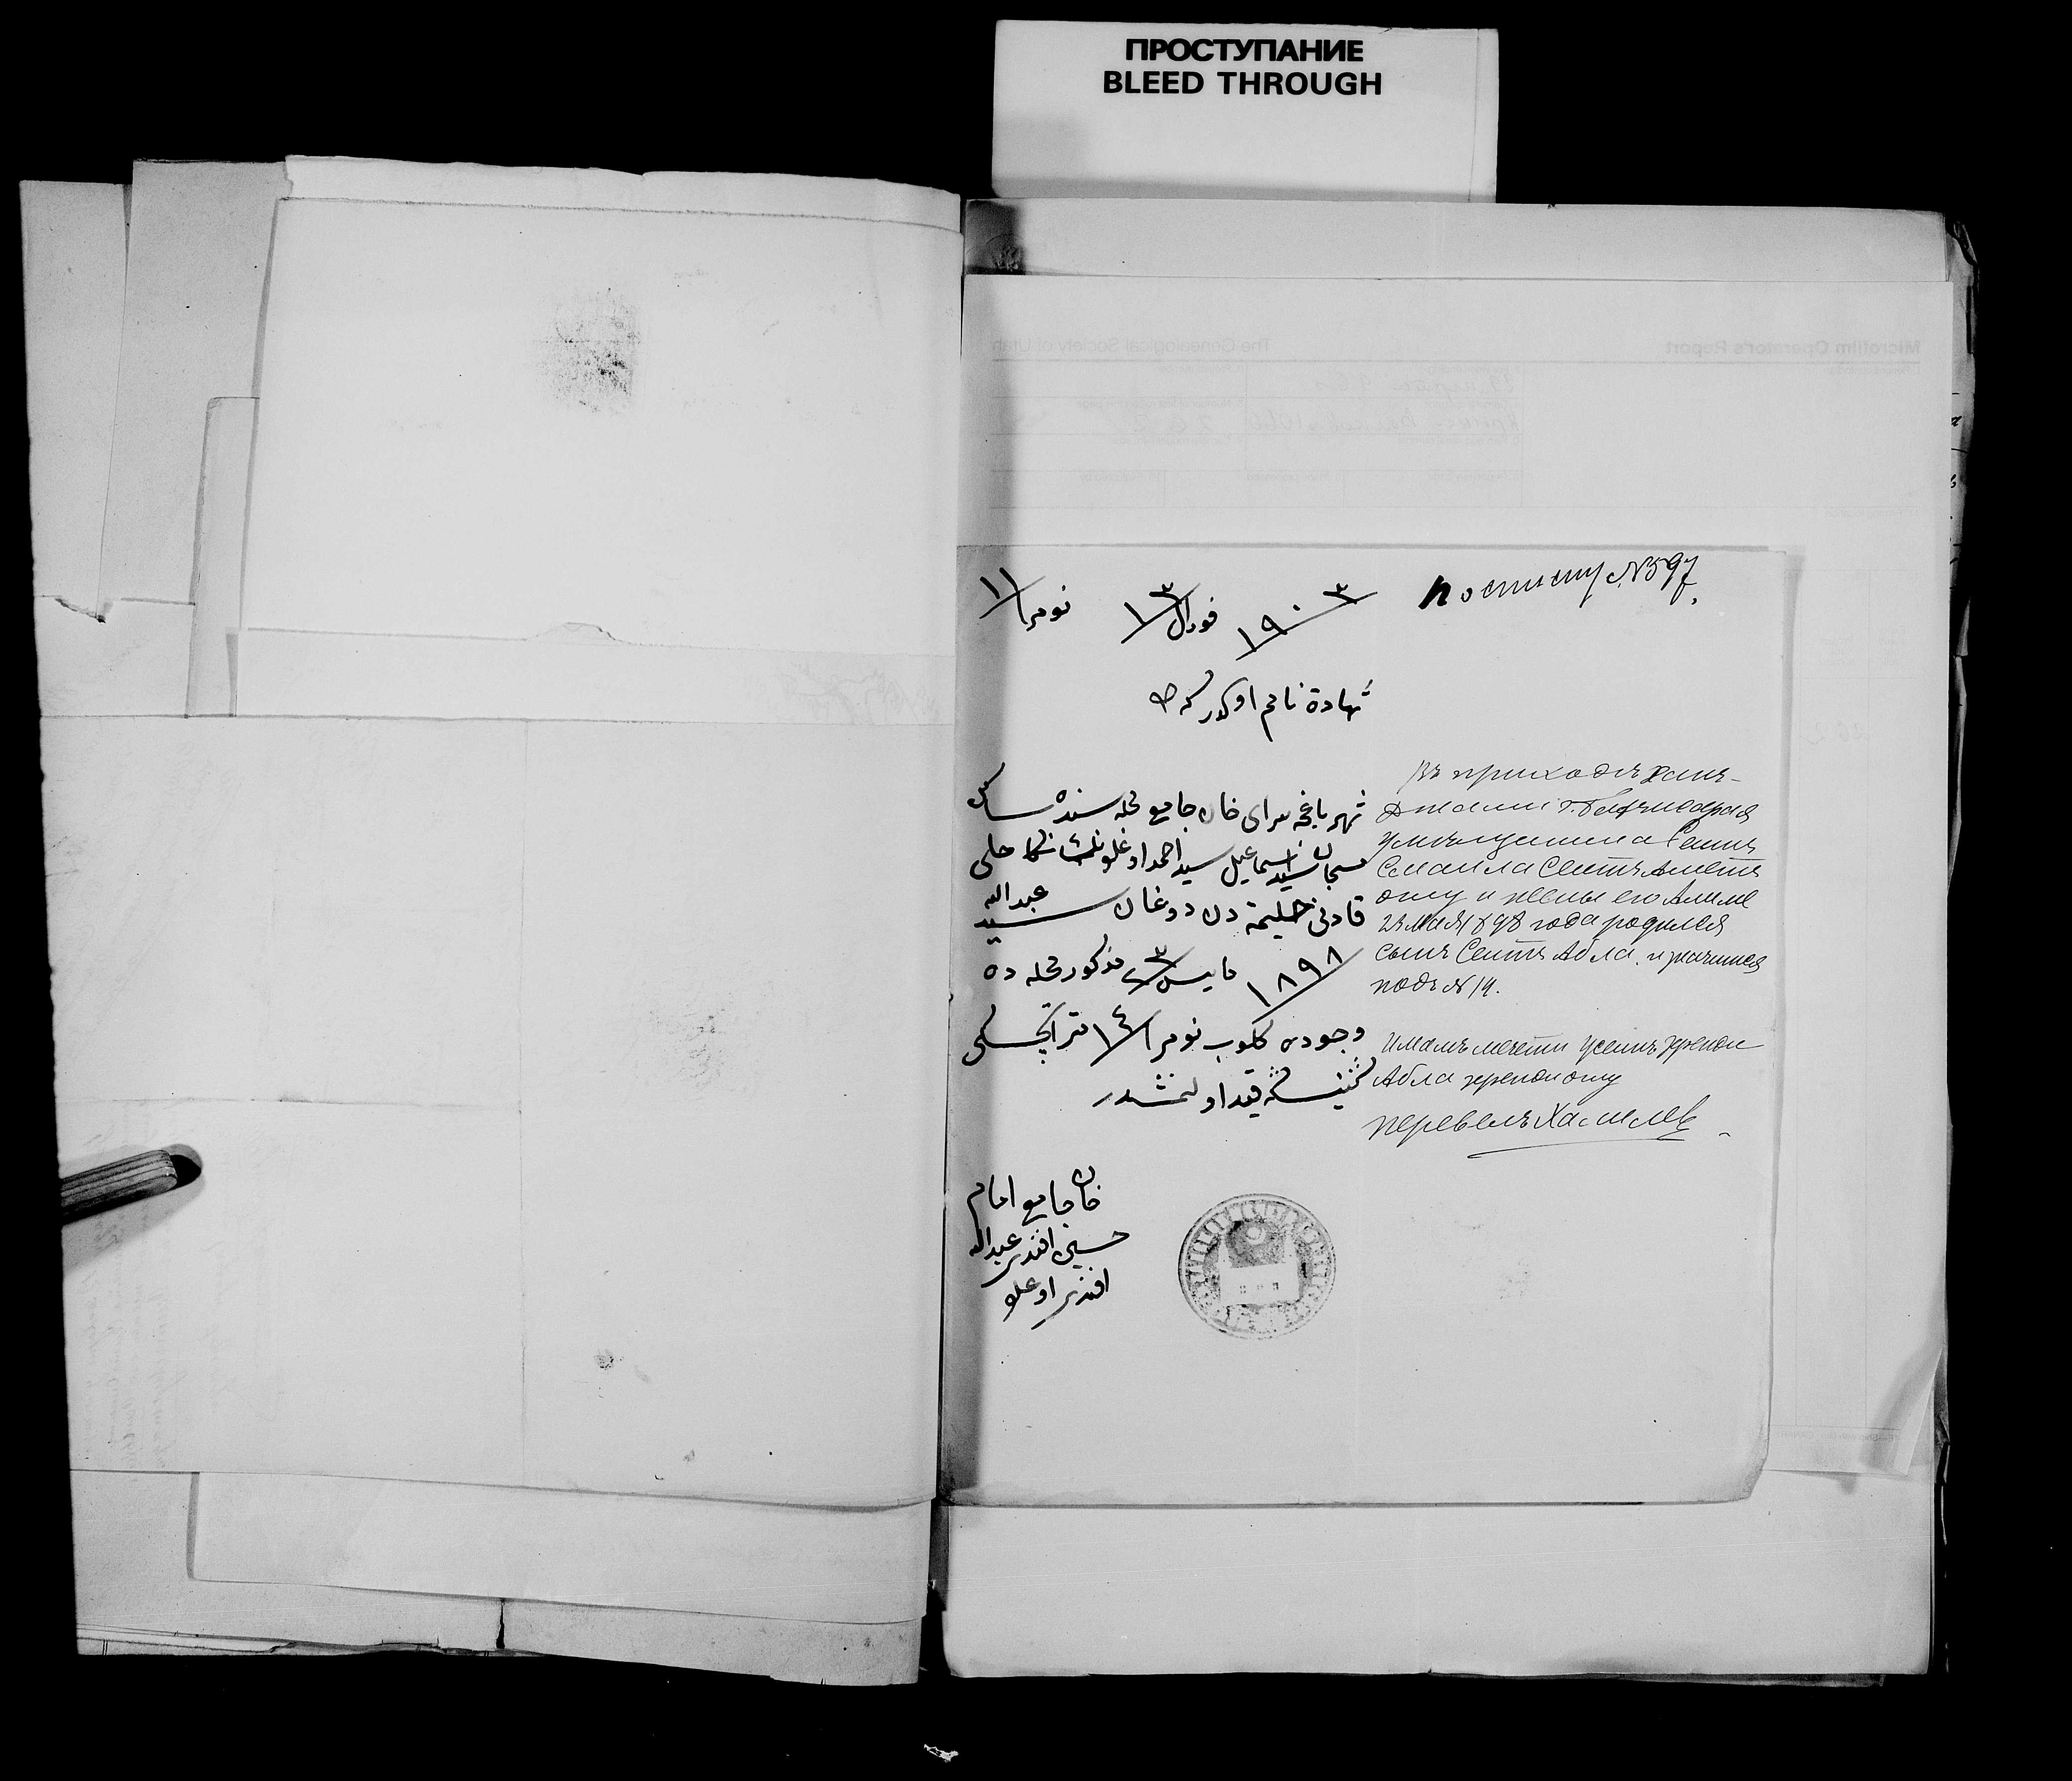 ПРОСТУПАНИЕ
BLEED THROUGH
Microfilm Operator's Report
The Genealogical Society of Utah
№ 597
١٩٠٣ فورال ١٣ نومرا ١١
شهادة نامه اوكدركه
شهر باغچه سراى خان جامع محله سنده ساكن
سيد اسماعيل سيد احمد اوغلونك نكاحلى
قادنى حليمه دن دوغان سيد عبدالله
١٨٩٨ مايس ٢٣ مذكور محله ده
وجوده كلوب نومرا ١٤ متريكسكى
قيد اولنمشدر
خان جامع امام
حسين افندى عبدالله
افندى اوغلو
Въ приходѣ Ханъ-
Джами г. Бахчисарая
у мѣщанина Сеитъ
Смаила Сеитъ Аметъ
оглу и жены его Алиме
23 мая 1898 года родился
сынъ Сеитъ Абла. и значится
подъ № 14.
Имамъ мечети Усеинъ Эфенди
Абла эфенди оглу
перевелъ Халилев